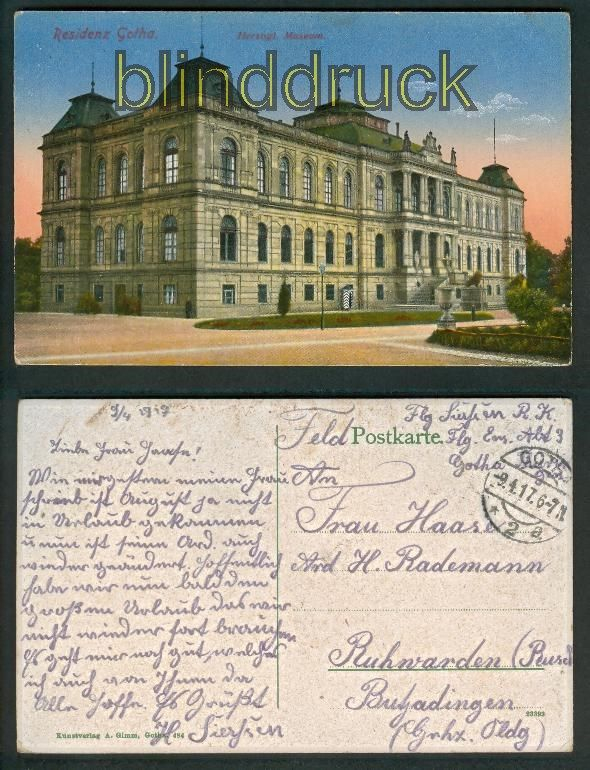 Residenz Gotha.
Herzogl. Museum.
blinddruck
9/4 1917
Liebe Frau Haase!
Wie mir gestern meine Frau
schreib ist August ja nicht
in Urlaub gekommen
u nun ist seine Ard. auch
wieder geändert. Hoffentlich
habe wir nun bald den
großen Urlaub das wir
nicht wieder fort brauchen
Es geht mir noch gut, welches
ich auch von Ihnen da
Alle hoffe. Es Grüßt
H
Kunstverlag A. Gimm, Gotha. 484
Feld Postkarte.
Flg R. K.
Flg. Ers. Abt 3
Gotha
GOTHA
-9.4.17.6-7.N
* 2 a
An
Frau Haase
Ard H. Rademann
Ruhwarden (Reus
Butjadingen
(Grhz. Oldg)
23393